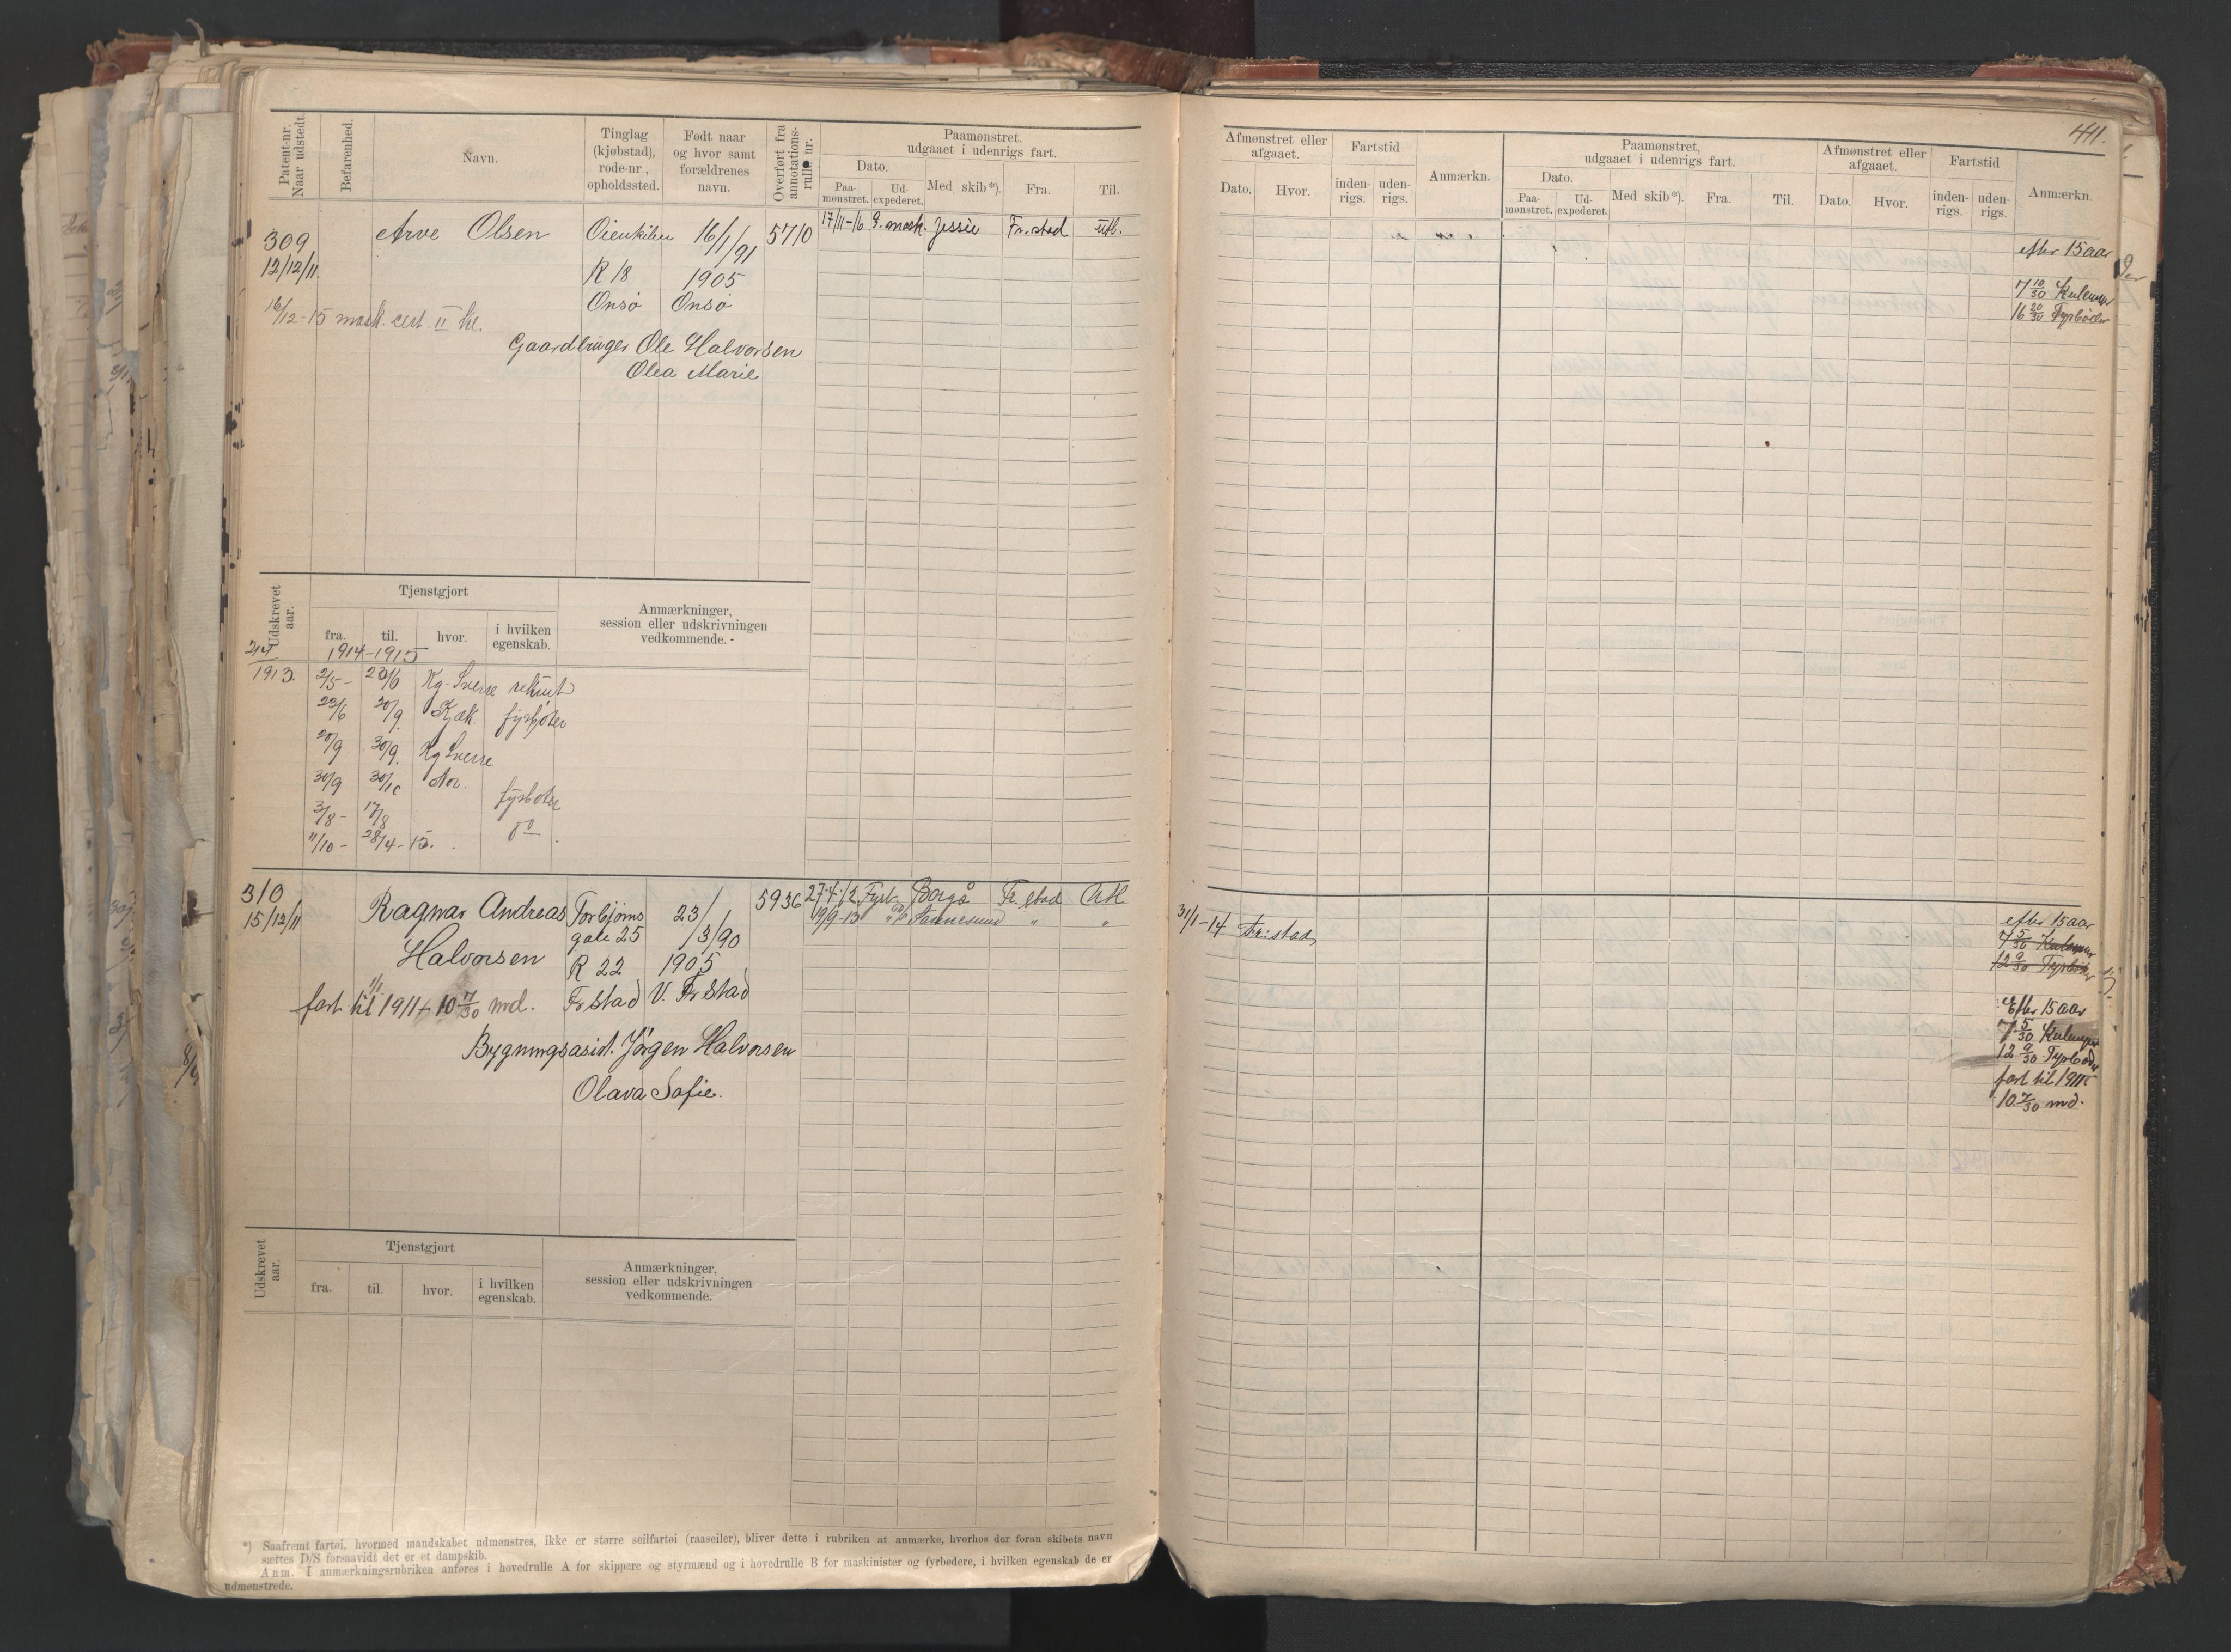 411.
Patent-nr. Naar udstedt.
Befarenhed.
Navn.
Tinglag (kjøbstad), rode-nr., opholdssted.
Født naar og hvor samt forældrenes navn.
Overført fra annotations-rulle nr.
Paamønstret, udgaaet i udenrigs fart.
Dato.
Paa-mønstret.
Ud-expederet.
Med skib*).
Fra.
Til.
309
12/12/11
Arve Olsen
R 18
Onsø
16/1/91
1905
Onsø
5710
17/11-16 2. mask. Jessie Fr.stad Utl.
16/12-15 mask. cert. II kl.
Gaardbruger Ole Halvorsen
Olea Marie
Udskrevet aar.
Tjenstgjort
fra.
til.
hvor.
i hvilken egenskab.
Anmærkninger, session eller udskrivningen vedkommende.
1914-1915
1913.
2/5- 23/6 Kg Sverre rekrut
23/6 30/9. Kjæk. fyrbøter
20/9 30/9. Kg Sverre
30/9 30/10 Nor.
fyrbøter
3/8- 17/8
11/10- 28/4-15. do
310
15/12/11
Ragnar Andreas
Halvorsen
Torbjørns
gate 25
R 22
Frstad
23/
/3/90
1905
V. Frstad
5936
27.4.12 Fyrb. Borgå Fr.stad Utl
19/9-13 " Sannesund " "
fart til 1/1 1911 + 10 7/30 md.
Bygningsasist. Jörgen Halvorsen
Olava Sofie.
Udskrevet aar.
Tjenstgjort
fra.
til.
hvor.
i hvilken egenskab.
Anmærkninger, session eller udskrivningen vedkommende.
*) Saafremt fartøi, hvormed mandskabet udmønstres, ikke er større seilfartøi (raaseiler), bliver dette i rubriken at anmærke, hvorhos der foran skibets navn
sættes D/S forsaavidt det er et dampskib.
Anm. I anmærkningsrubriken anføres i hovedrulle A for skippere og styrmænd og i hovedrulle B for maskinister og fyrbødere, i hvilken egenskab de er
udmønstrede.
Afmønstret eller afgaaet.
Dato.
Hvor.
Fartstid
inden-rigs.
uden-rigs.
Anmærkn.
Paamønstret, udgaaet i udenrigs fart.
Dato.
Paa-mønstret.
Ud-expederet.
Med skib*).
Fra.
Til.
Afmønstret eller afgaaet.
Dato.
Hvor.
Fartstid
inden-rigs.
uden-rigs.
Anmærkn.
efter 15 aar
7 10/30 Kulemper
16 20/30 Fyrbøder
31/1-14 Fr:stad
efter 15 aar
7 5/30 Kulemper
12 9/30 Fyrbøder
Efter 15 aar
7 5/30 Kulemper
12 9/30 Fyrbøder
fart til 1911
10 7/30 md.